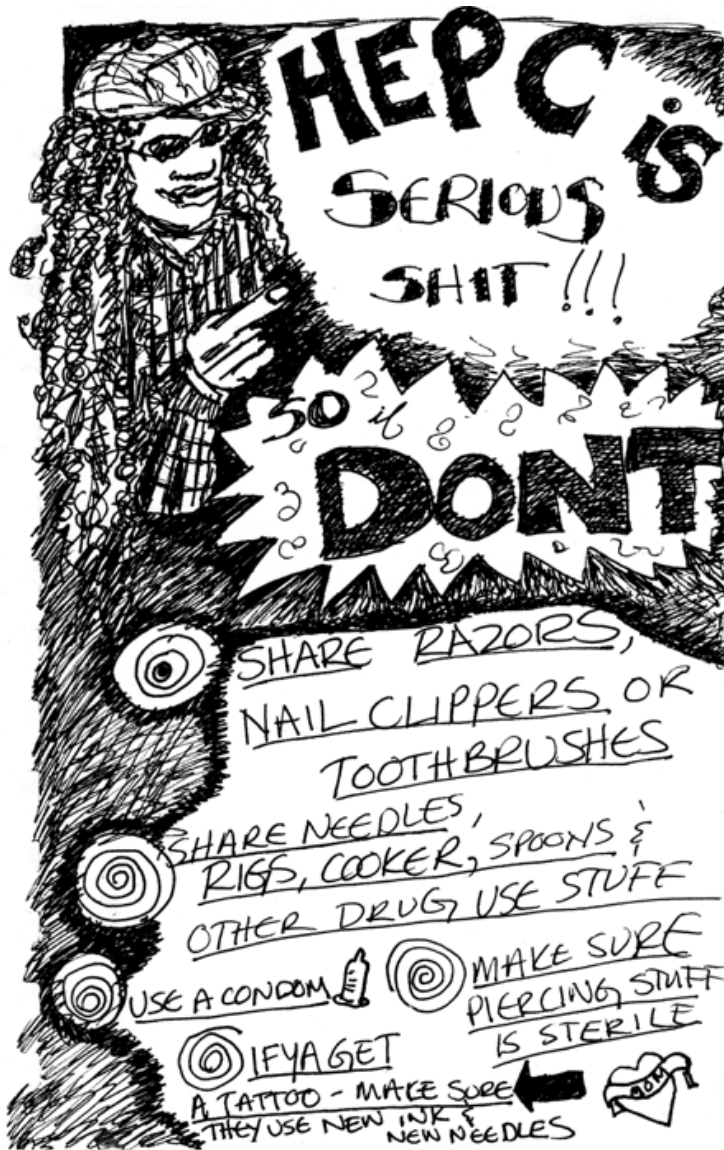 HEPC is
SERIOUS
SHIT!!!
SO
DONT
SHARE RAZORS,
NAIL CLIPPERS OR
TOOTHBRUSHES
SHARE NEEDLES,
RIGS, COOKER, SPOONS &
OTHER DRUG USE STUFF
USE A CONDOM
MAKE SURE
PIERCING STUFF
IS STERILE
IF YA GET
A TATTOO - MAKE SURE
THEY USE NEW INK &
NEW NEEDLES
MOM